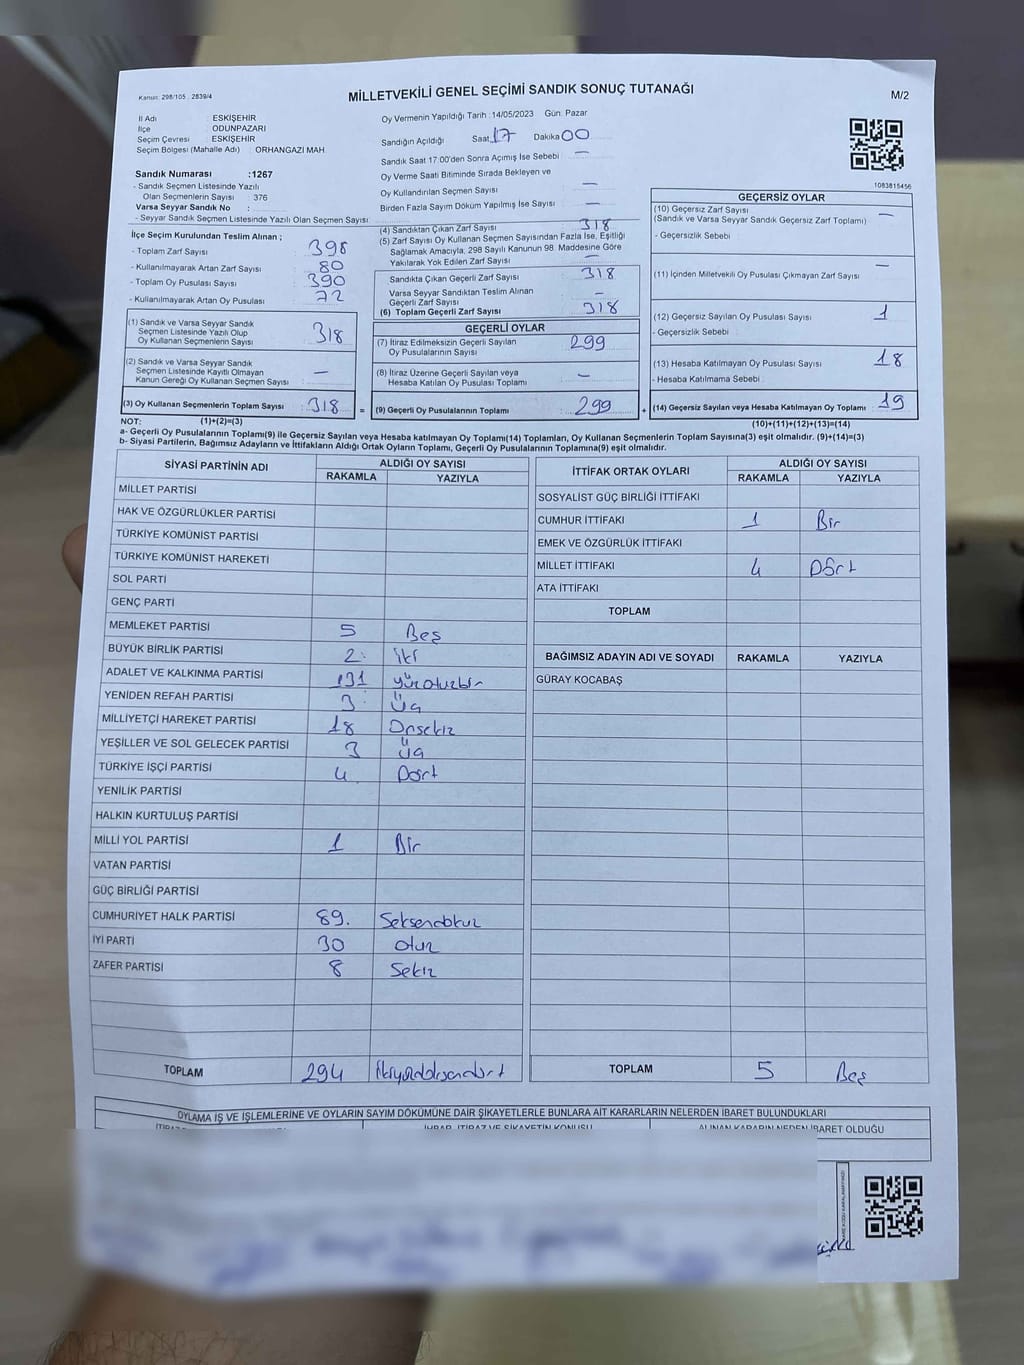 Kanun: 298/105 . 2839/4
MİLLETVEKİLİ GENEL SEÇİMİ SANDIK SONUÇ TUTANAĞI
M/2
İl Adı : ESKİŞEHİR
İlçe : ODUNPAZARI
Seçim Çevresi : ESKİŞEHİR
Seçim Bölgesi (Mahalle Adı) : ORHANGAZİ MAH.
Sandık Numarası :1267
- Sandık Seçmen Listesinde Yazılı
Olan Seçmenlerin Sayısı : 376
Varsa Seyyar Sandık No :
- Seyyar Sandık Seçmen Listesinde Yazılı Olan Seçmen Sayısı
Oy Vermenin Yapıldığı Tarih :14/05/2023 Gün: Pazar
Sandığın Açıldığı Saat 17 Dakika 00
Sandık Saat 17:00'den Sonra Açımış İse Sebebi : —
Oy Verme Saati Bitiminde Sırada Bekleyen ve
Oy Kullandırılan Seçmen Sayısı : —
Birden Fazla Sayım Döküm Yapılmış İse Sayısı : —
1083815456
İlçe Seçim Kurulundan Teslim Alınan ;
- Toplam Zarf Sayısı : 398
- Kullanılmayarak Artan Zarf Sayısı : 80
- Toplam Oy Pusulası Sayısı : 390
- Kullanılmayarak Artan Oy Pusulası : 72
(1) Sandık ve Varsa Seyyar Sandık
Seçmen Listesinde Yazılı Olup
Oy Kullanan Seçmenlerin Sayısı : 318
(2) Sandık ve Varsa Seyyar Sandık
Seçmen Listesinde Kayıtlı Olmayan
Kanun Gereği Oy Kullanan Seçmen Sayısı : —
(3) Oy Kullanan Seçmenlerin Toplam Sayısı : 318 =
(4) Sandıktan Çıkan Zarf Sayısı : 318
(5) Zarf Sayısı Oy Kullanan Seçmen Sayısından Fazla İse, Eşitliği
Sağlamak Amacıyla, 298 Sayılı Kanunun 98. Maddesine Göre
Yakılarak Yok Edilen Zarf Sayısı : —
Sandıkta Çıkan Geçerli Zarf Sayısı : 318
Varsa Seyyar Sandıktan Teslim Alınan
Geçerli Zarf Sayısı : —
(6) Toplam Geçerli Zarf Sayısı : 318
GEÇERLİ OYLAR
(7) İtiraz Edilmeksizin Geçerli Sayılan
Oy Pusulalarının Sayısı : 299
(8) İtiraz Üzerine Geçerli Sayılan veya
Hesaba Katılan Oy Pusulası Toplamı : —
(9) Geçerli Oy Pusulalarının Toplamı : 299 +
GEÇERSİZ OYLAR
(10) Geçersiz Zarf Sayısı : —
(Sandık ve Varsa Seyyar Sandık Geçersiz Zarf Toplamı)
- Geçersizlik Sebebi :
(11) İçinden Milletvekili Oy Pusulası Çıkmayan Zarf Sayısı : —
(12) Geçersiz Sayılan Oy Pusulası Sayısı : 1
- Geçersizlik Sebebi :
(13) Hesaba Katılmayan Oy Pusulası Sayısı : 18
- Hesaba Katılmama Sebebi :
(14) Geçersiz Sayılan veya Hesaba Katılmayan Oy Toplamı : 19
NOT: (1)+(2)=(3) (10)+(11)+(12)+(13)=(14)
a- Geçerli Oy Pusulalarının Toplamı(9) ile Geçersiz Sayılan veya Hesaba katılmayan Oy Toplamı(14) Toplamları, Oy Kullanan Seçmenlerin Toplam Sayısına(3) eşit olmalıdır. (9)+(14)=(3)
b- Siyasi Partilerin, Bağımsız Adayların ve İttifakların Aldığı Ortak Oyların Toplamı, Geçerli Oy Pusulalarının Toplamına(9) eşit olmalıdır.
SİYASİ PARTİNİN ADI ALDIĞI OY SAYISI
RAKAMLA YAZIYLA
MİLLET PARTİSİ
HAK VE ÖZGÜRLÜKLER PARTİSİ
TÜRKİYE KOMÜNİST PARTİSİ
TÜRKİYE KOMÜNİST HAREKETİ
SOL PARTİ
GENÇ PARTİ
MEMLEKET PARTİSİ 5 Beş
BÜYÜK BİRLİK PARTİSİ 2 iki
ADALET VE KALKINMA PARTİSİ 131 yüzotuzbir
YENİDEN REFAH PARTİSİ 3 Üç
MİLLİYETÇİ HAREKET PARTİSİ 18 Onsekiz
YEŞİLLER VE SOL GELECEK PARTİSİ 3 Üç
TÜRKİYE İŞÇİ PARTİSİ 4 Dört
YENİLİK PARTİSİ
HALKIN KURTULUŞ PARTİSİ
MİLLİ YOL PARTİSİ 1 Bir
VATAN PARTİSİ
GÜÇ BİRLİĞİ PARTİSİ
CUMHURİYET HALK PARTİSİ 89 Seksendokuz
İYİ PARTİ 30 otuz
ZAFER PARTİSİ 8 Sekiz
TOPLAM 294 ikiyüzdoksandört
İTTİFAK ORTAK OYLARI ALDIĞI OY SAYISI
RAKAMLA YAZIYLA
SOSYALİST GÜÇ BİRLİĞİ İTTİFAKI
CUMHUR İTTİFAKI 1 Bir
EMEK VE ÖZGÜRLÜK İTTİFAKI
MİLLET İTTİFAKI 4 Dört
ATA İTTİFAKI
TOPLAM
BAĞIMSIZ ADAYIN ADI VE SOYADI RAKAMLA YAZIYLA
GÜRAY KOCABAŞ
TOPLAM 5 Beş
OYLAMA İŞ VE İŞLEMLERİNE VE OYLARIN SAYIM DÖKÜMÜNE DAİR ŞİKAYETLERLE BUNLARA AİT KARARLARIN NELERDEN İBARET BULUNDUKLARI
İHBAR, İTİRAZ VE ŞİKAYETİN KONUSU
ALINAN KARARIN NEDEN İBARET OLDUĞU